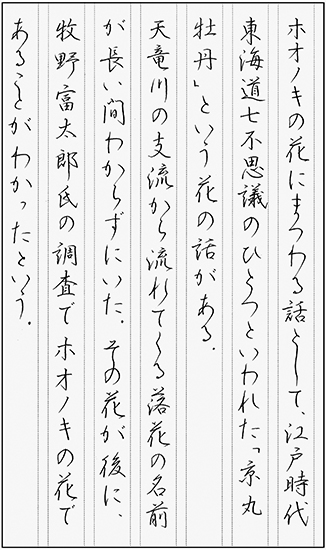 ホオノキの花にまつわる話として、江戸時代
東海道七不思議のひとつといわれた「京丸
牡丹」という花の話がある.
天竜川の支流から流れてくる落花の名前
が長い間わからずにいた. その花が後に、
牧野富太郎氏の調査でホオノキの花で
あることがわかったという.